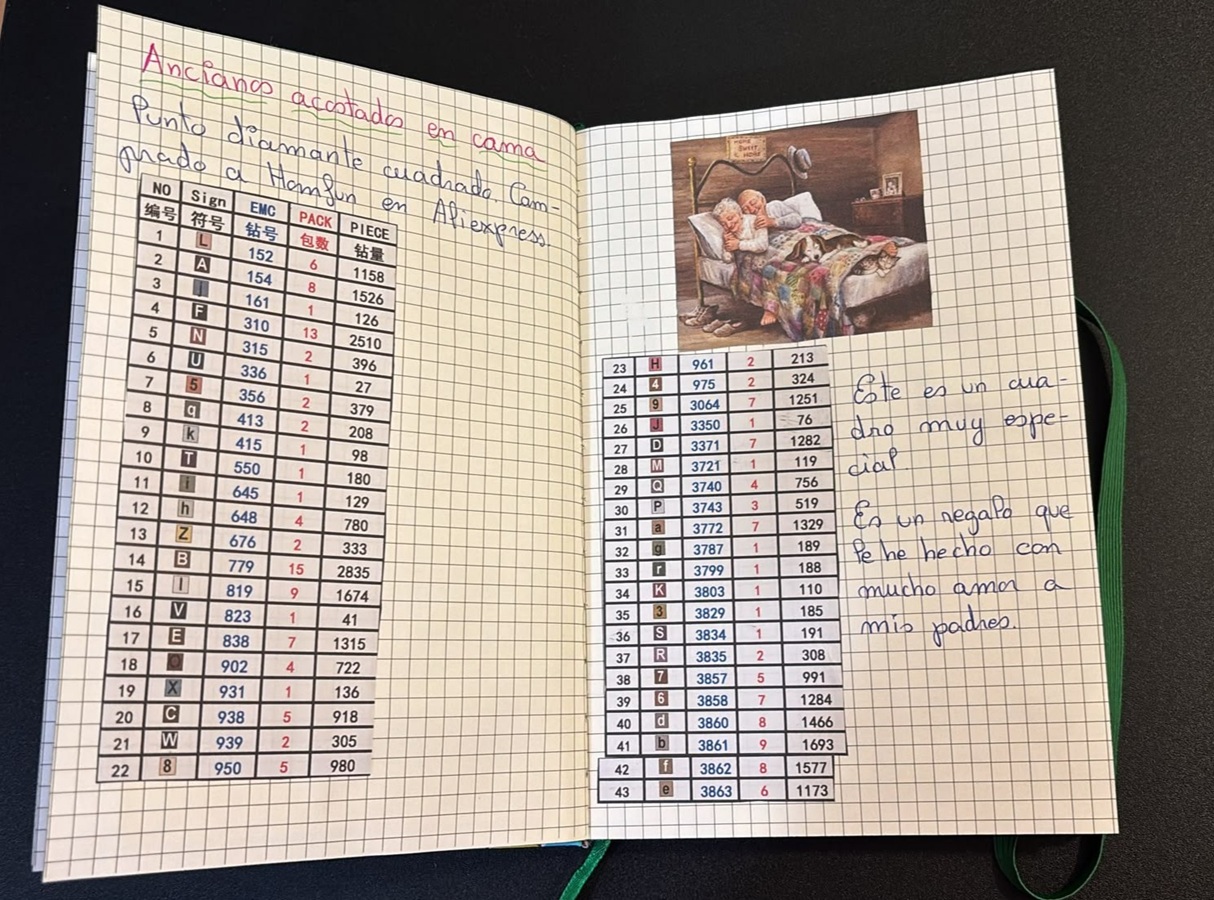 Ancianos acostados en cama
Punto diamante cuadrado. Com-
prado a Homfun en Aliexpress.
NO Sign EMC PACK PIECE
编号 符号 钻号 包数 钻量
1 L 152 6 1158
2 A 154 8 1526
3 j 161 1 126
4 F 310 13 2510
5 N 315 2 396
6 U 336 1 27
7 5 356 2 379
8 q 413 2 208
9 k 415 1 98
10 T 550 1 180
11 i 645 1 129
12 h 648 4 780
13 Z 676 2 333
14 B 779 15 2835
15 I 819 9 1674
16 V 823 1 41
17 E 838 7 1315
18 O 902 4 722
19 X 931 1 136
20 C 938 5 918
21 W 939 2 305
22 8 950 5 980
HOME
SWEET
HOME
23 H 961 2 213
24 4 975 2 324
25 9 3064 7 1251
26 J 3350 1 76
27 D 3371 7 1282
28 M 3721 1 119
29 Q 3740 4 756
30 P 3743 3 519
31 a 3772 7 1329
32 g 3787 1 189
33 r 3799 1 188
34 K 3803 1 110
35 3 3829 1 185
36 S 3834 1 191
37 R 3835 2 308
38 7 3857 5 991
39 6 3858 7 1284
40 d 3860 8 1466
41 b 3861 9 1693
42 f 3862 8 1577
43 e 3863 6 1173
Este es un cua-
dro muy espe-
cial.
Es un regalo que
le he hecho con
mucho amor a
mis padres.